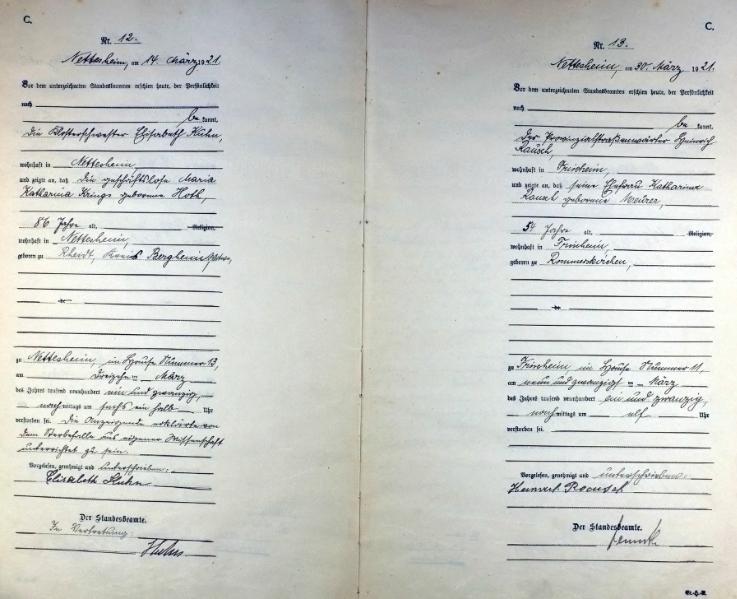 C.
Nr. 12.
Nettesheim, am 14. März 1921.
Vor dem unterzeichneten Standesbeamten erschien heute, der Persönlichkeit
nach
be kannt,
die Klosterschwester Elisabeth Kuhn,
wohnhaft in Nettesheim,
und zeigte an, daß die geschäftslose Maria
Katharina Krings geborene Hoth,
86 Jahre alt, Religion,
wohnhaft in Nettesheim,
geboren zu Rheidt, Kreis Bergheim
zu Nettesheim, im Hause Nummer 13,
am dreizehn März
des Jahres tausend neunhundert ein und zwanzig,
nachmittags um sechs ein halb Uhr
verstorben sei. Die Anzeigende erklärte von
dem Sterbefalle aus eigener Wissenschaft
unterrichtet zu sein.
Vorgelesen, genehmigt und unterschrieben.
Elisabeth Kuhn
Der Standesbeamte.
In Vertretung:
C.
Nr. 13.
Nettesheim, am 30. März 1921.
Vor dem unterzeichneten Standesbeamten erschien heute, der Persönlichkeit
nach
be kannt,
der Provinzialstraßenwärter Heinrich
Rausch,
wohnhaft in Frixheim,
und zeigte an, daß seine Ehefrau Katharina
geborene Meurer,
54 Jahre alt, Religion,
wohnhaft in Frixheim,
geboren zu Rommerskirchen,
zu Frixheim im Hause Nummer 11,
am neun und zwanzigst März
des Jahres tausend neunhundert ein und zwanzig,
nachmittags um elf Uhr
verstorben sei.
Vorgelesen, genehmigt und unterschrieben.
Heinrich
Der Standesbeamte.